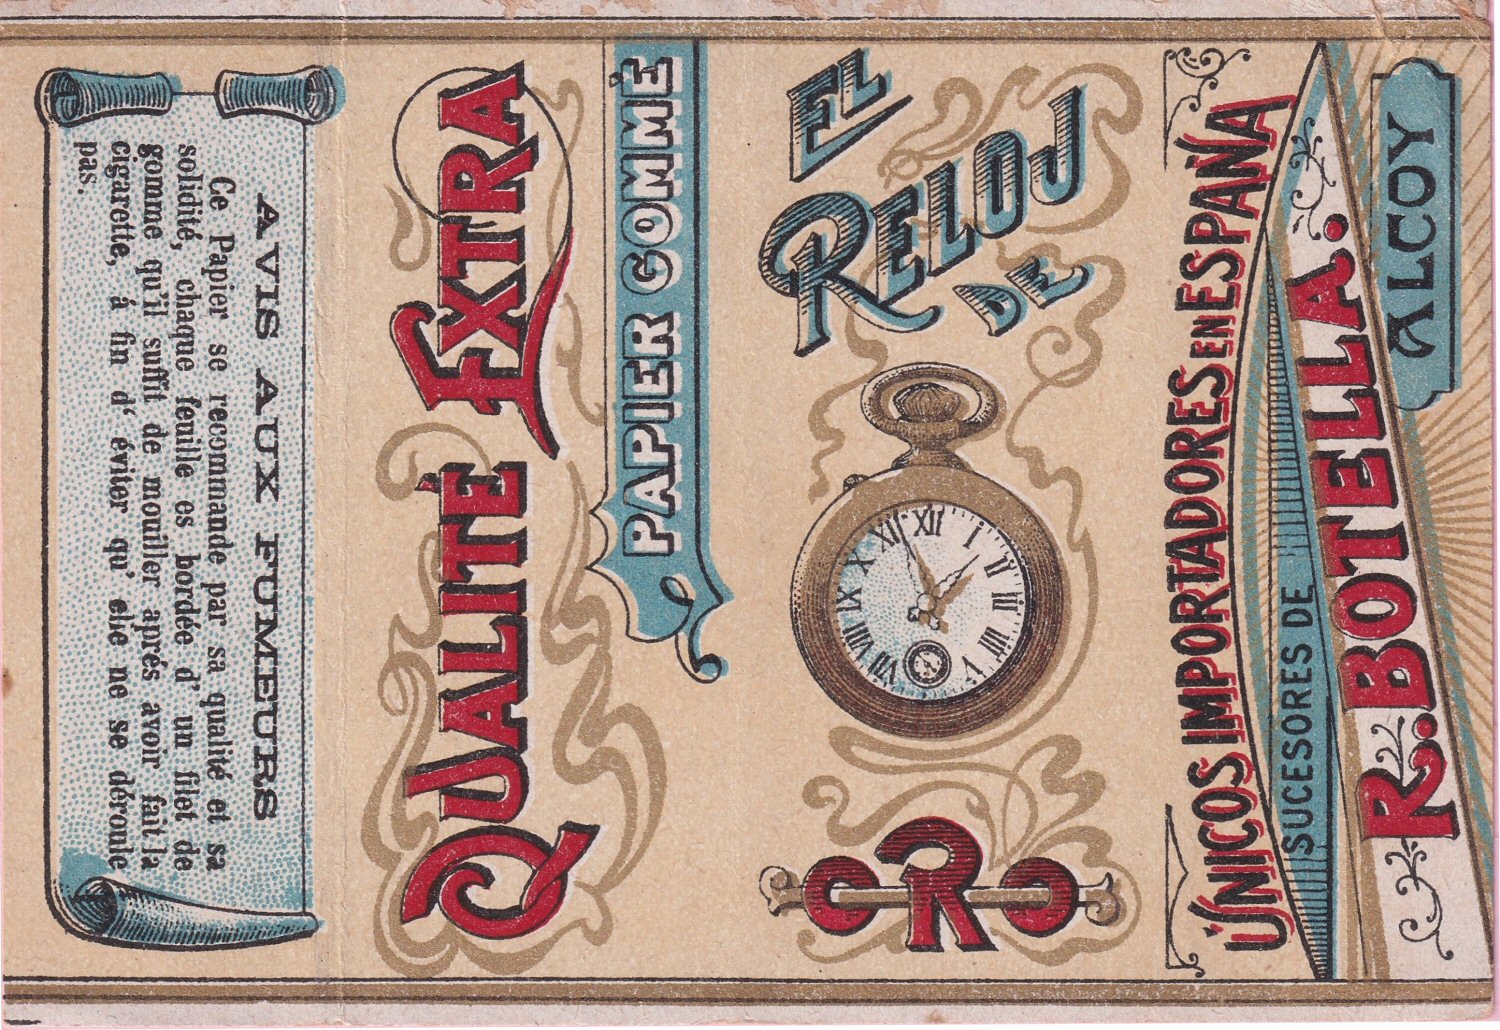 AVIS AUX FUMEURS
Ce Papier se recommande par sa qualité et sa
solidité, chaque feuille es bordée d' un filet de
gomme qu'il suffit de mouiller aprés avoir fait la
cigarette, á fin d' éviter qu' elle ne se déroule
pas.
QUALITÉ EXTRA
PAPIER GOMMÉ
EL
RELOJ
DE
XII I II III IIII V VII VIII IX X XI
ORO
ÚNICOS IMPORTADORES EN ESPAÑA
SUCESORES DE
R. BOTELLA.
ALCOY